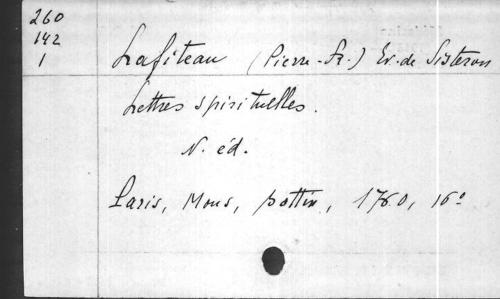 260
142
1
Lafiteau (Pierre-Fr.) Ev. de Sisteron
Lettres spirituelles.
N. éd.
Paris, Mons, bottin, 1760, 16º